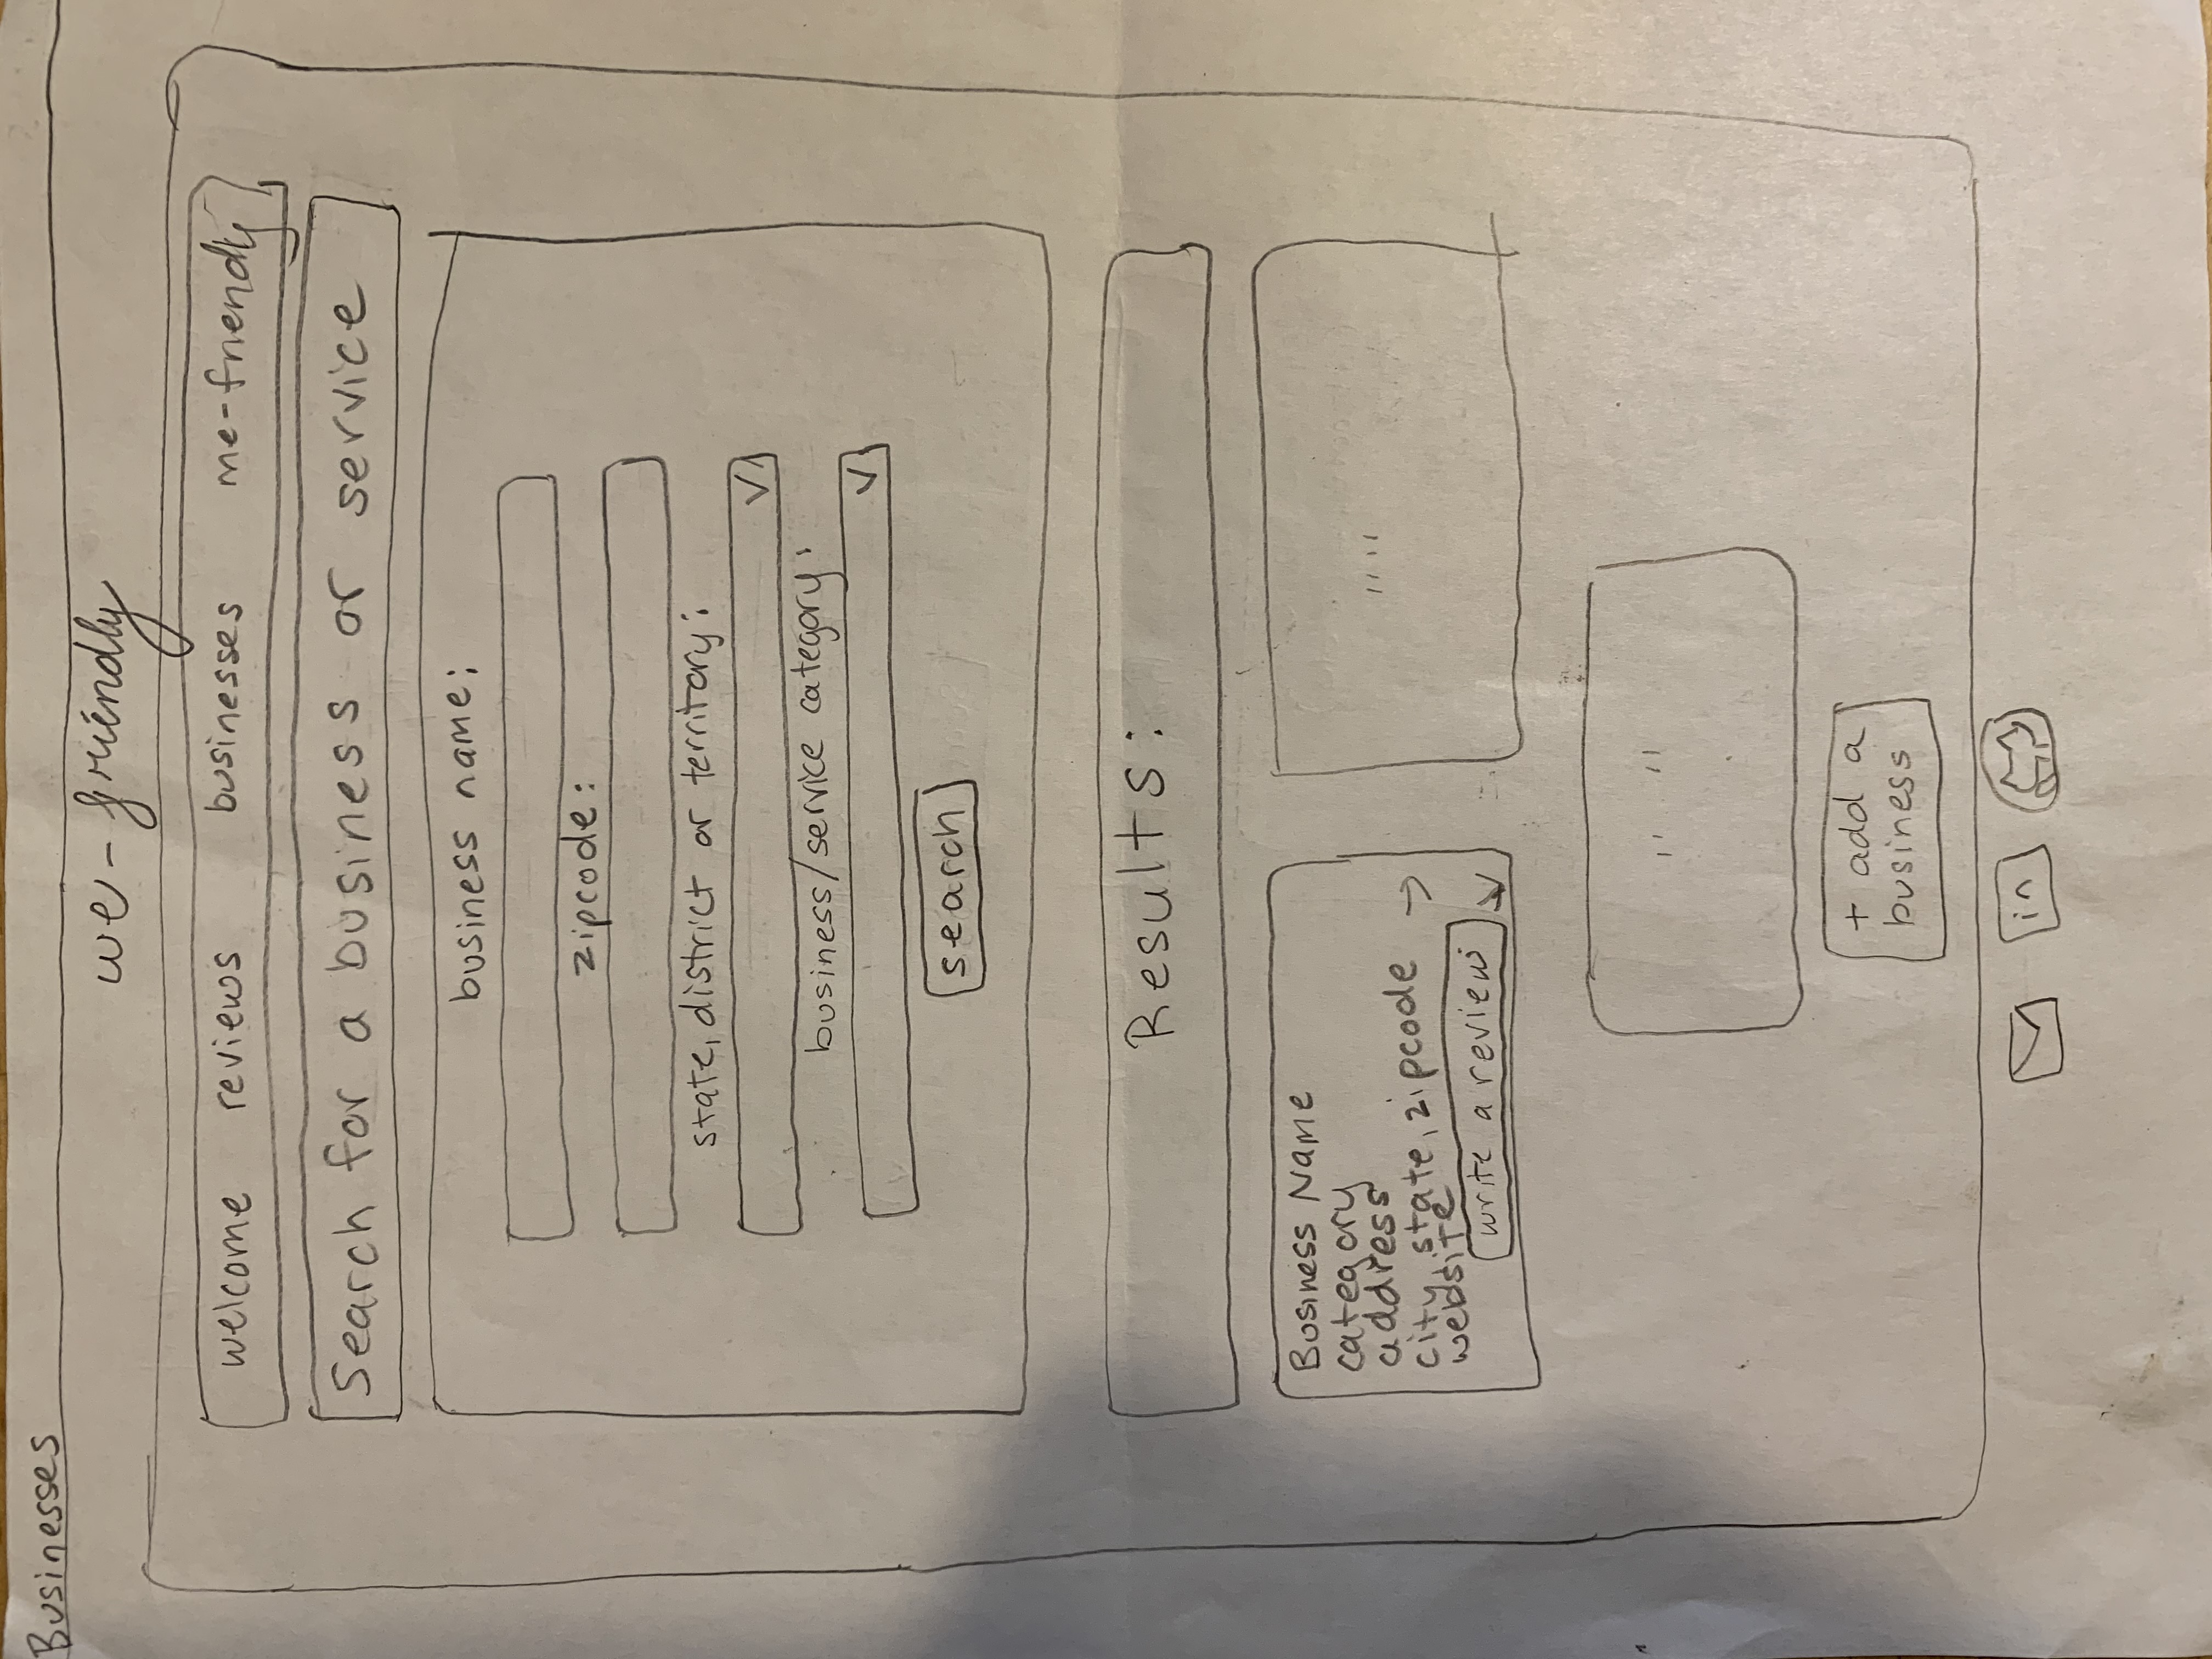 Businesses
we-friendly
welcome reviews businesses me-friendly
Search for a business or service
business name:
zipcode:
state, district or territory:
business/service category:
search
Results:
Business Name
category
address
city, state, zipcode
website
write a review
" "
" "
+ add a
business
in